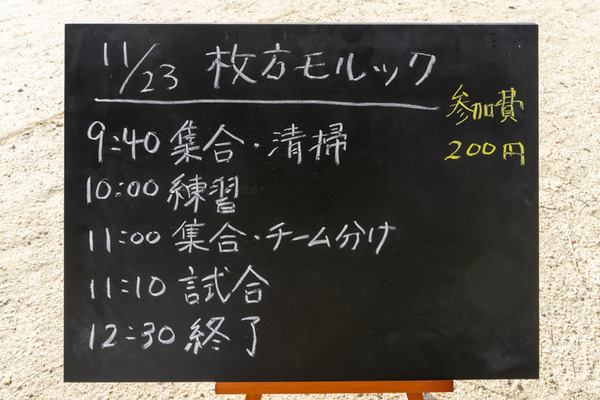 11/23 枚方モルック
参加費
200円
9:40 集合・清掃
10:00 練習
11:00 集合・チーム分け
11:10 試合
12:30 終了